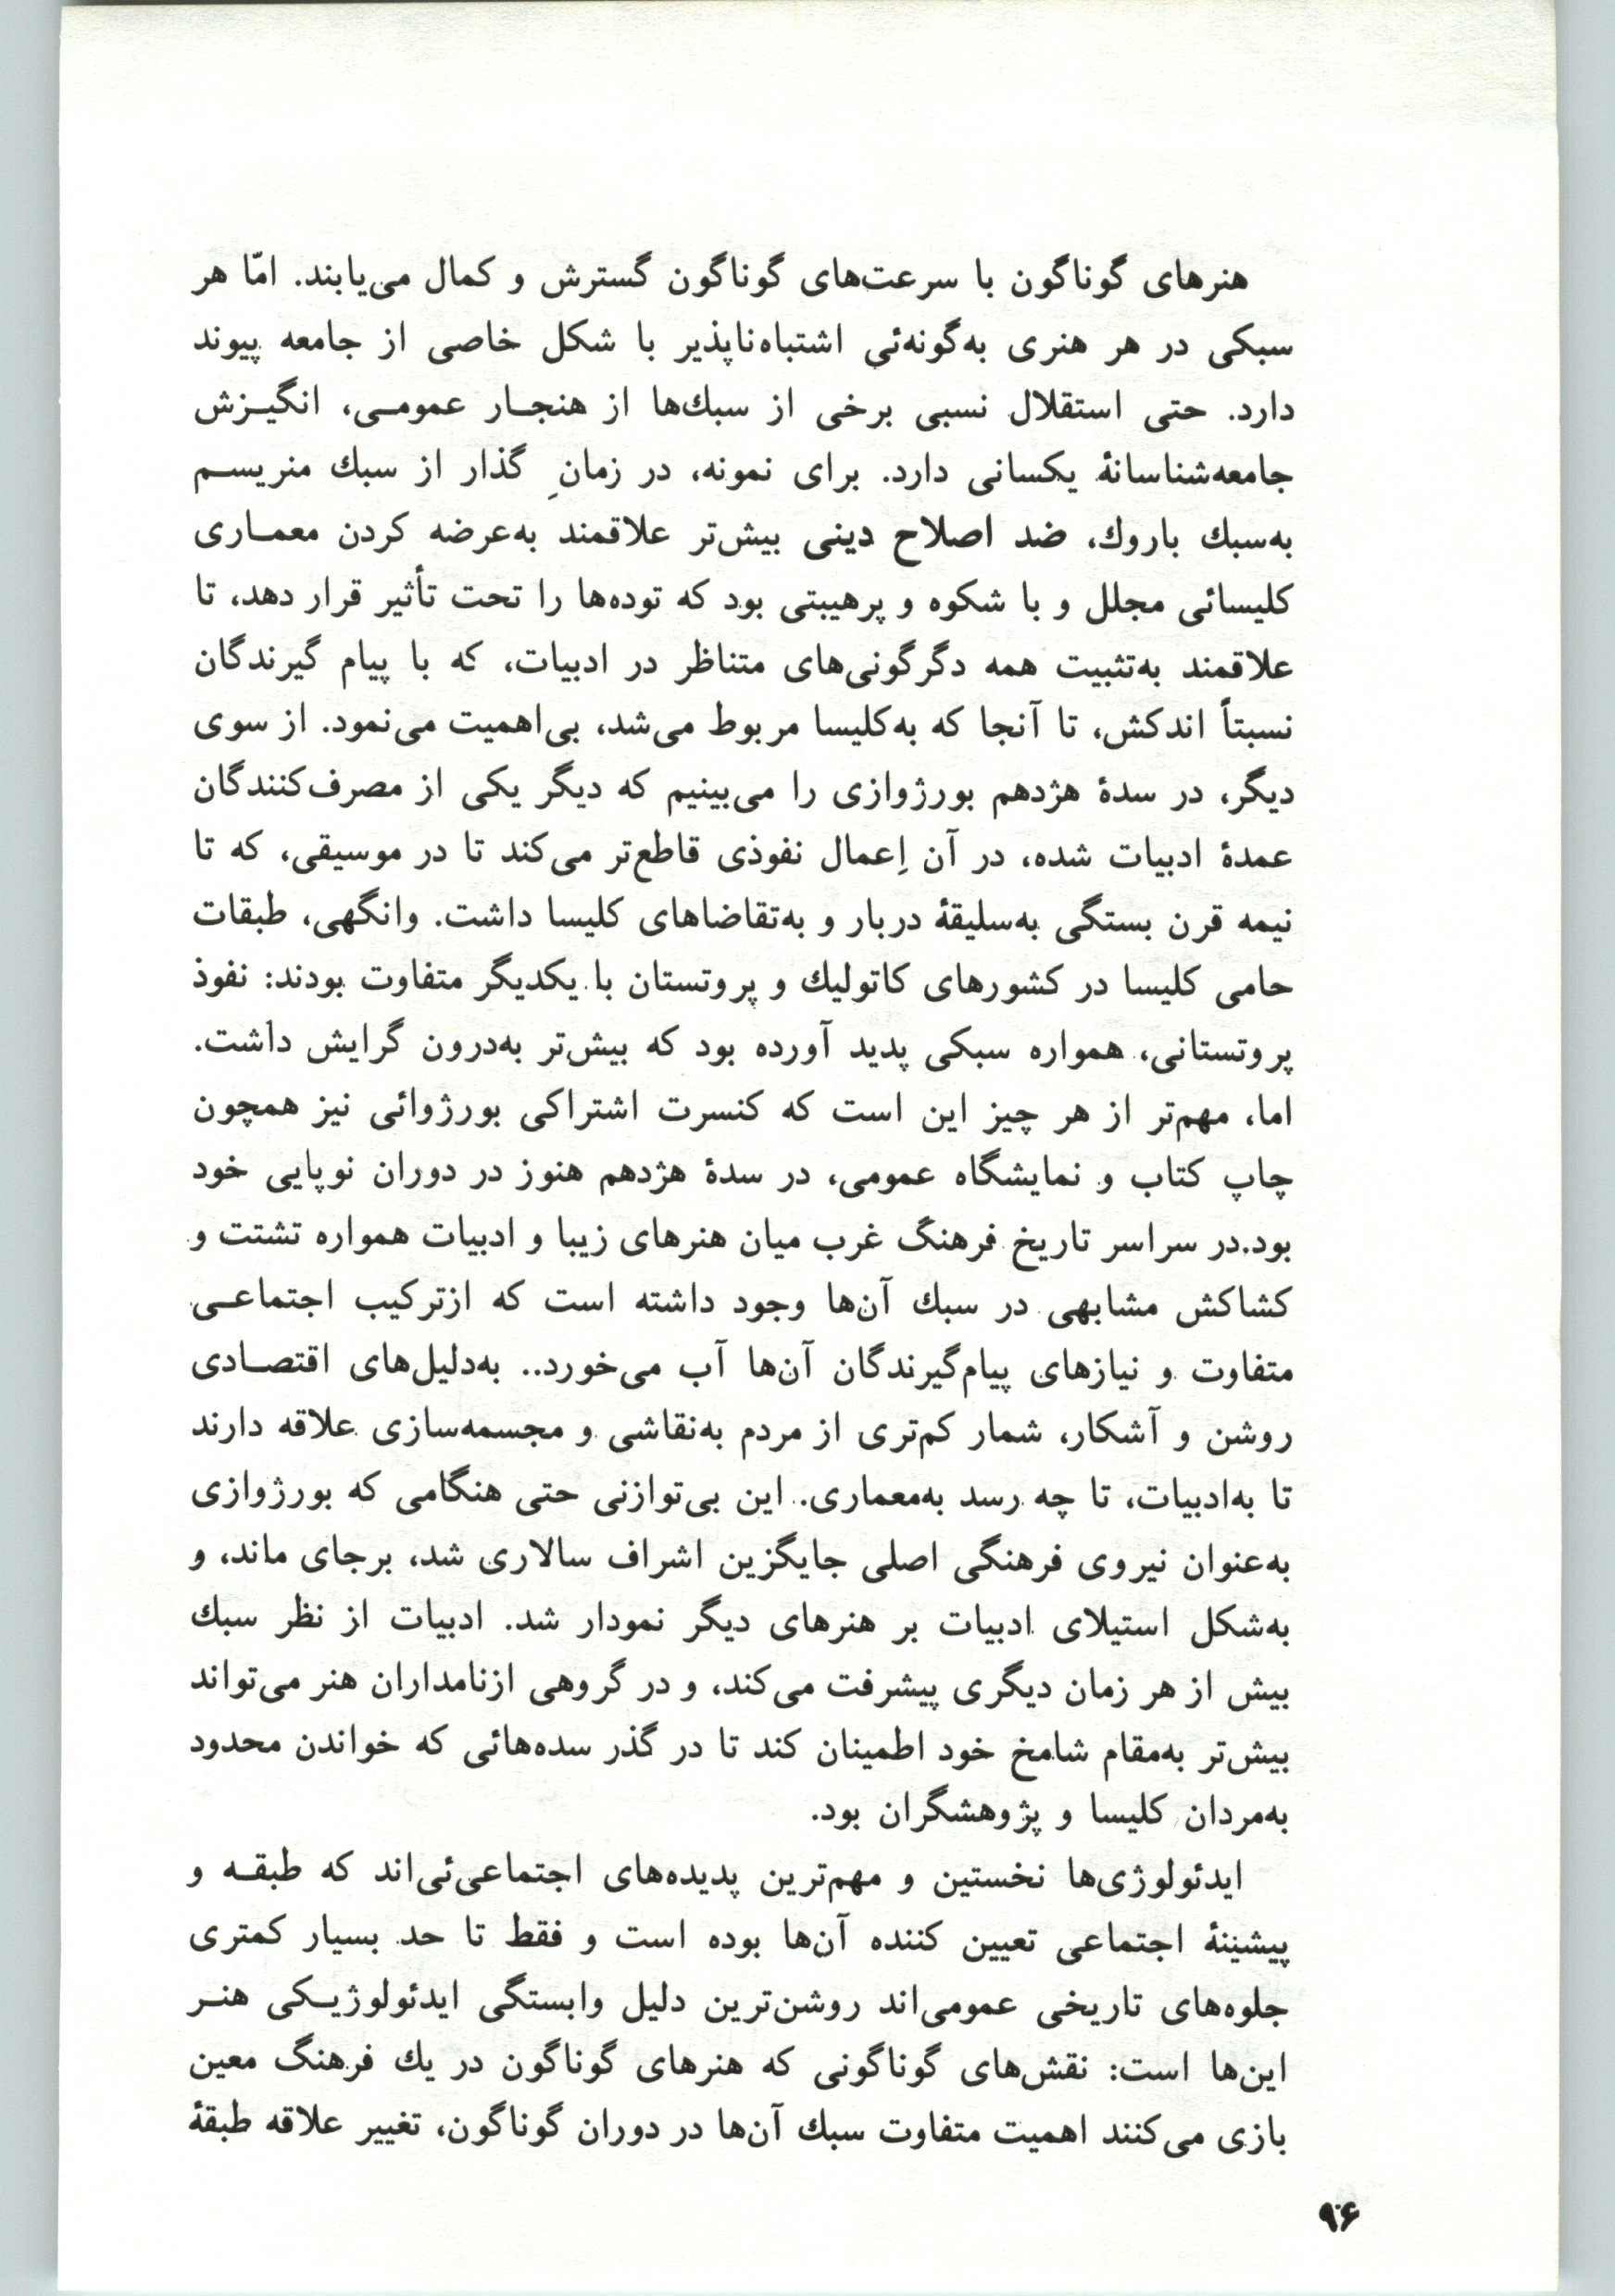 هنرهای گوناگون با سرعت‌های گوناگون گسترش و کمال می‌یابند. امّا هر
سبکی در هر هنری به‌گونه‌ئی اشتباه‌ناپذیر با شکل خاصی از جامعه پیوند
دارد. حتی استقلال نسبی برخی از سبك‌ها از هنجـار عمومـی، انگیـزش
جامعه‌شناسانهٔ یکسانی دارد. برای نمونه، در زمانِ گذار از سبك منریسـم
به‌سبك باروك، ضد اصلاح دینی بیش‌تر علاقمند به‌عرضه کردن معمـاری
کلیسائی مجلل و با شکوه و پرهیبتی بود که توده‌ها را تحت تأثیر قرار دهد، تا
علاقمند به‌تثبیت همه دگرگونی‌های متناظر در ادبیات، که با پیام گیرندگان
نسبتاً اندکش، تا آنجا که به‌کلیسا مربوط می‌شد، بی‌اهمیت می‌نمود. از سوی
دیگر، در سدهٔ هژدهم بورژوازی را می‌بینیم که دیگر یکی از مصرف‌کنندگان
عمدهٔ ادبیات شده، در آن اِعمال نفوذی قاطع‌تر می‌کند تا در موسیقی، که تا
نیمه قرن بستگی به‌سلیقهٔ دربار و به‌تقاضاهای کلیسا داشت. وانگهی، طبقات
حامی کلیسا در کشورهای کاتولیك و پروتستان با یکدیگر متفاوت بودند: نفوذ
پروتستانی، همواره سبکی پدید آورده بود که بیش‌تر به‌درون گرایش داشت.
اما، مهم‌تر از هر چیز این است که کنسرت اشتراکی بورژوائی نیز همچون
چاپ کتاب و نمایشگاه عمومی، در سدهٔ هژدهم هنوز در دوران نوپایی خود
بود.در سراسر تاریخ فرهنگ غرب میان هنرهای زیبا و ادبیات همواره تشتت و
کشاکش مشابهی در سبك آن‌ها وجود داشته است که ازترکیب اجتماعـی
متفاوت و نیازهای پیام‌گیرندگان آن‌ها آب می‌خورد.. به‌دلیل‌های اقتصـادی
روشن و آشکار، شمار کم‌تری از مردم به‌نقاشی و مجسمه‌سازی علاقه دارند
تا به‌ادبیات، تا چه رسد به‌معماری. این بی‌توازنی حتی هنگامی که بورژوازی
به‌عنوان نیروی فرهنگی اصلی جایگزین اشراف سالاری شد، برجای ماند، و
به‌شکل استیلای ادبیات بر هنرهای دیگر نمودار شد. ادبیات از نظر سبك
بیش از هر زمان دیگری پیشرفت می‌کند، و در گروهی ازنامداران هنر می‌تواند
بیش‌تر به‌مقام شامخ خود اطمینان کند تا در گذر سده‌هائی که خواندن محدود
به‌مردان کلیسا و پژوهشگران بود.
ایدئولوژی‌ها نخستین و مهم‌ترین پدیده‌های اجتماعی‌ئی‌اند که طبقـه و
پیشینهٔ اجتماعی تعیین کننده آن‌ها بوده است و فقط تا حد بسیار کمتری
جلوه‌های تاریخی عمومی‌اند روشن‌ترین دلیل وابستگی ایدئولوژیـکی هنـر
این‌ها است: نقش‌های گوناگونی که هنرهای گوناگون در یك فرهنگ معین
بازی می‌کنند اهمیت متفاوت سبك آن‌ها در دوران گوناگون، تغییر علاقه طبقهٔ
۹۶